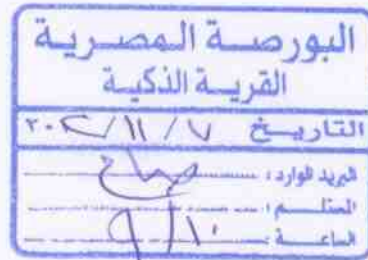 البورصة المصرية
القرية الذكية
التاريخ ٧ / ١١ / ٢٠٢
البريد الوارد :
المستلم :
الساعة : ٩/١٠